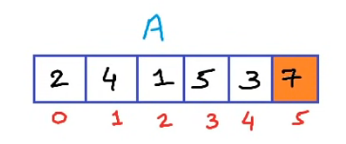 A
2 4 1 5 3 7
0 1 2 3 4 5